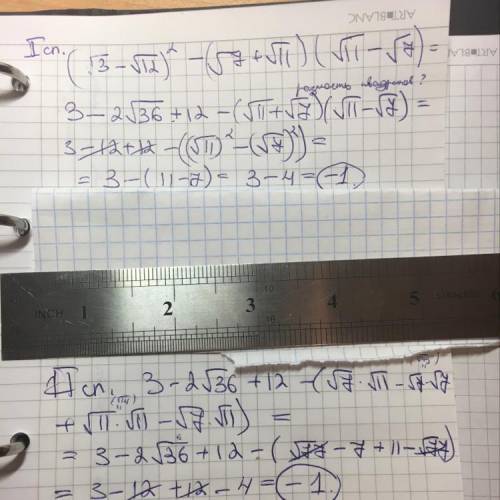 ARTBLANC
I сп.
(√3 − √12)² − (√7 + √11)(√11 − √7) =
разность квадратов?
3 − 2√36 + 12 − (√11 + √7)(√11 − √7) =
3 − 12 + 12 − ((√11)² − (√7)²) =
= 3 − (11 − 7) = 3 − 4 = −1.
INCH 1 2 3 4 5
II сп. 3 − 2√36 + 12 − (√7 · √11 − √7 · √7
+ √11 · √11 − √7 · √11) =
= 3 − 2√36 + 12 − (√77 − 7 + 11 − √77)
= 3 − 12 + 12 − 4 = −1.